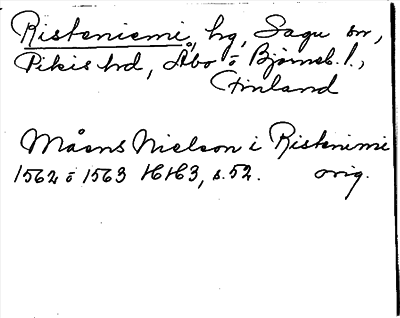 Risteniemi, hg, Sagu sn,
Pikis hd, Åbo o Björneb. l.,
Finland
Måens Nielson i Ristenimi
1562 o 1563 HH3, s. 52. orig.